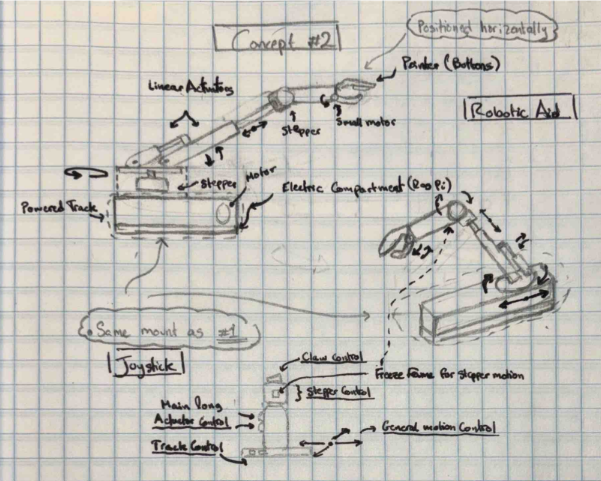 Concept #2
Positioned horizontally
Pointer (Buttons)
Linear Actuators
Robotic Aid
Stepper
Small motor
Stepper
Motor
Electric Compartment (Ras Pi)
Powered Track
Same mount as #1
Joystick
Claw Control
Freeze Frame for stepper motion
Stepper Control
Main long
Actuator Control
General motion Control
Track Control